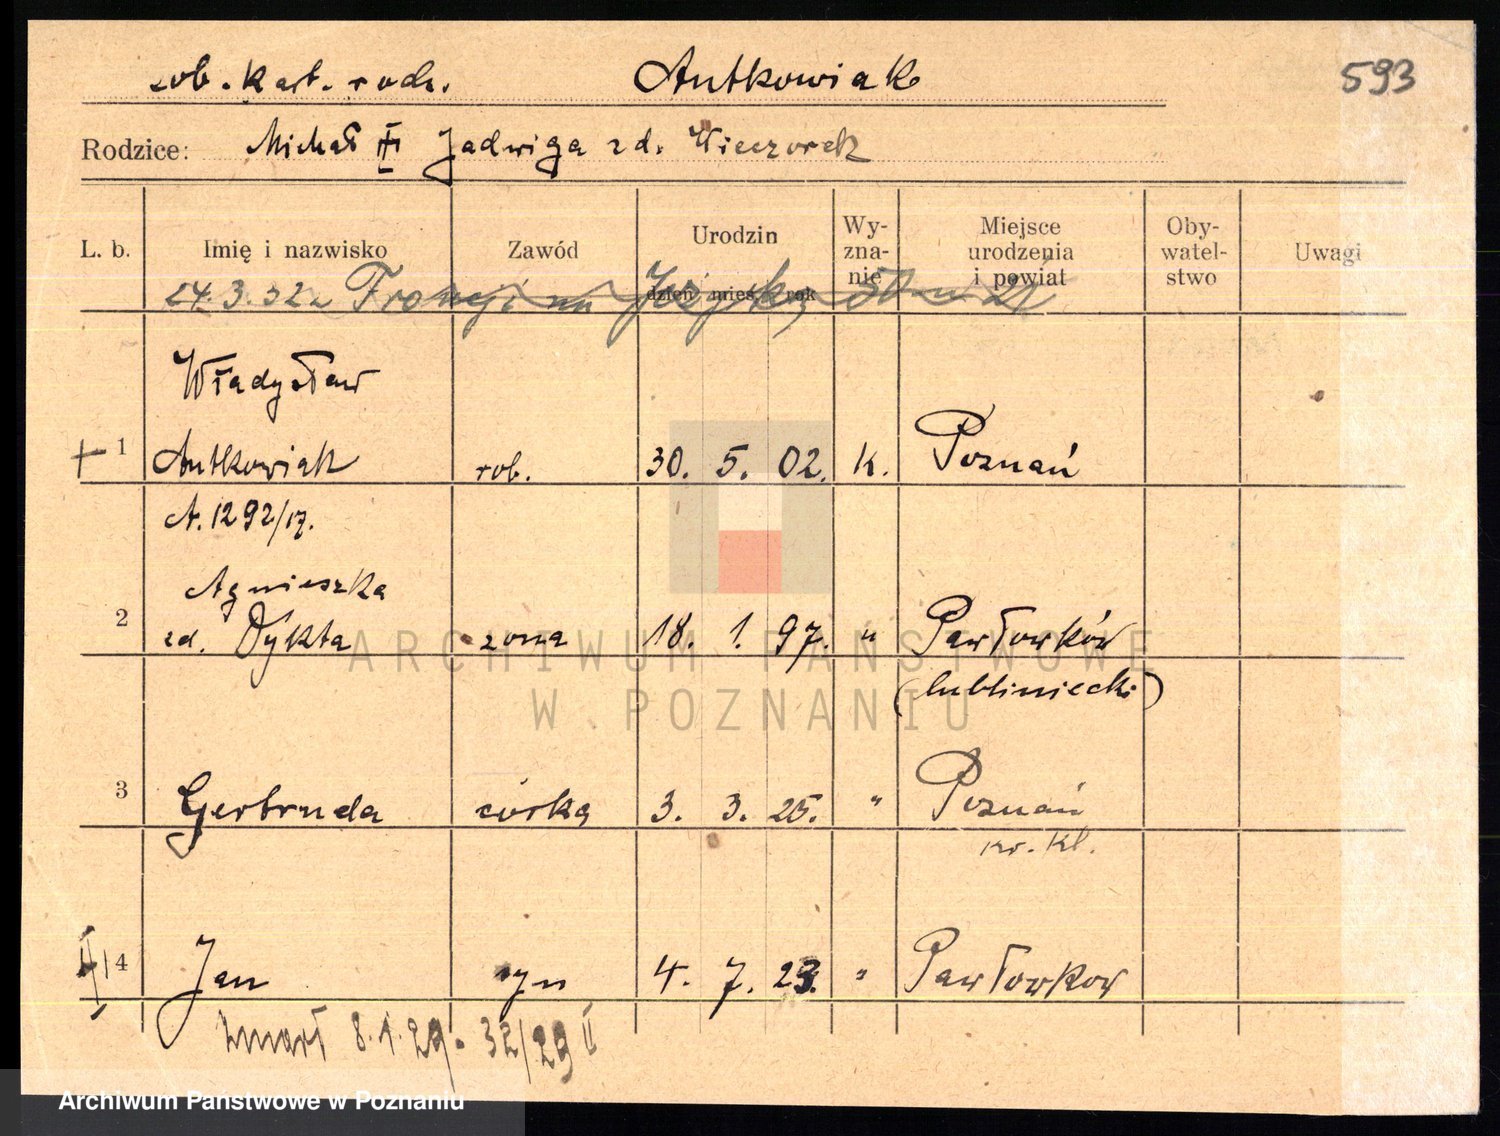 zob. kart. rodz. Antkowiak 593
Rodzice: Michał III Jadwiga zd. Wieczorek
L. b. Imię i nazwisko Zawód Urodzin dzień mies. rok Wy-zna-nie Miejsce urodzenia i powiat Oby-watel-stwo Uwagi
24.3.32
Władysław
1 Antkowiak rob. 30. 5. 02. k. Poznań
A. 1292/17.
Agnieszka
2 zd. Dykta żona 18. 1. 97. " Pawłowków
(lubliniecki)
3 Gertruda córka 3. 3. 25. " Poznań
kr. kl.
II 4 Jan syn 4. 7. 23. " Pawłowkow
zmarł 8.1.29. 32/29 II
ARCHIWUM PAŃSTWOWE
W POZNANIU
Archiwum Państwowe w Poznaniu